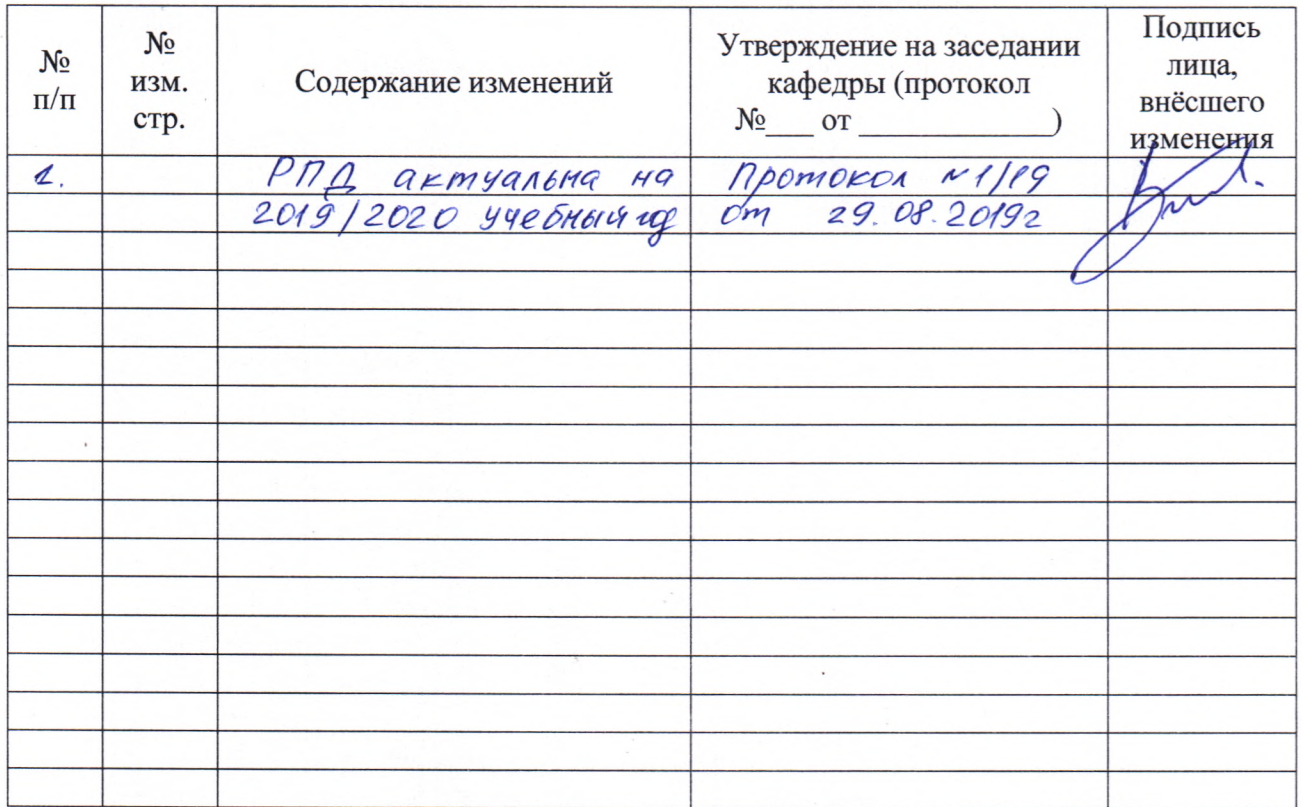 № п/п
№ изм. стр.
Содержание изменений
Утверждение на заседании
кафедры (протокол
№___ от _____________)
Подпись
лица,
внёсшего
изменения
1.
РПД актуальна на
2019/2020 учебный год
Протокол №1/19
от 29.08.2019г